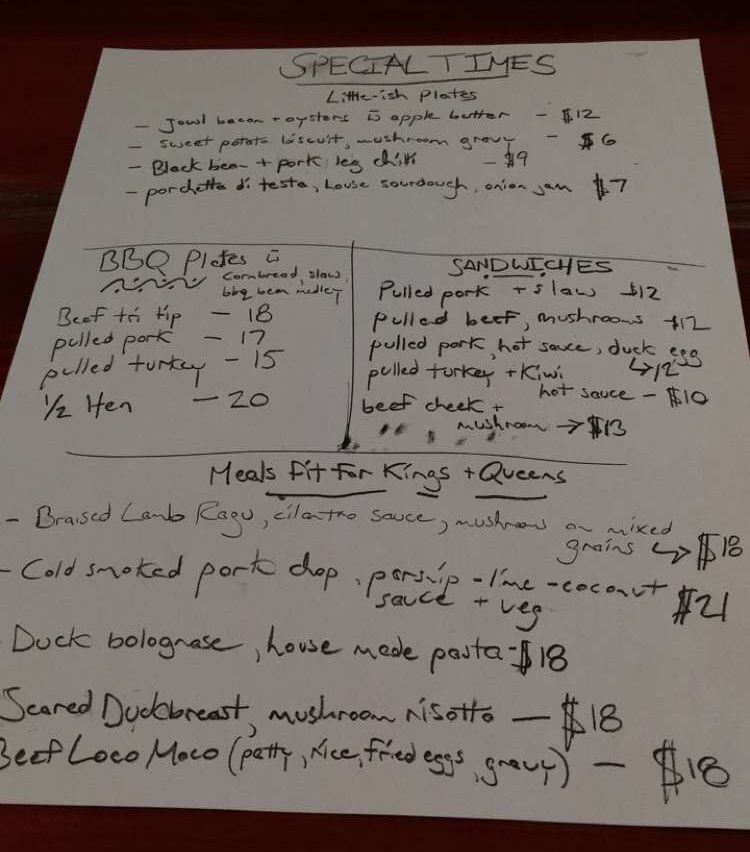 SPECIAL TIMES
Little-ish Plates
- Jowl bacon + oysters w̄ apple butter - $12
- sweet potato biscuit, mushroom gravy - $6
- Black bean + pork leg chili - $9
- porchetta di testa, house sourdough, onion jam $7
BBQ Plates w̄
cornbread, slaw,
bbq bean medley
Beef tri tip - 18
pulled pork - 17
pulled turkey - 15
1/2 Hen - 20
SANDWICHES
Pulled pork + slaw $12
pulled beef, mushrooms $12
pulled pork, hot sauce, duck egg
↳12
pulled turkey + Kiwi
hot sauce - $10
beef cheek +
mushroom → $13
Meals Fit For Kings + Queens
- Braised Lamb Ragu, cilantro sauce, mushrooms on mixed
grains ↳ $18
- Cold smoked pork chop, parsnip-lime-coconut
sauce + veg $21
Duck bolognase, house made pasta - $18
Seared Duckbreast, mushroom risotto - $18
Beef Loco Moco (patty, rice, fried eggs, gravy) - $18